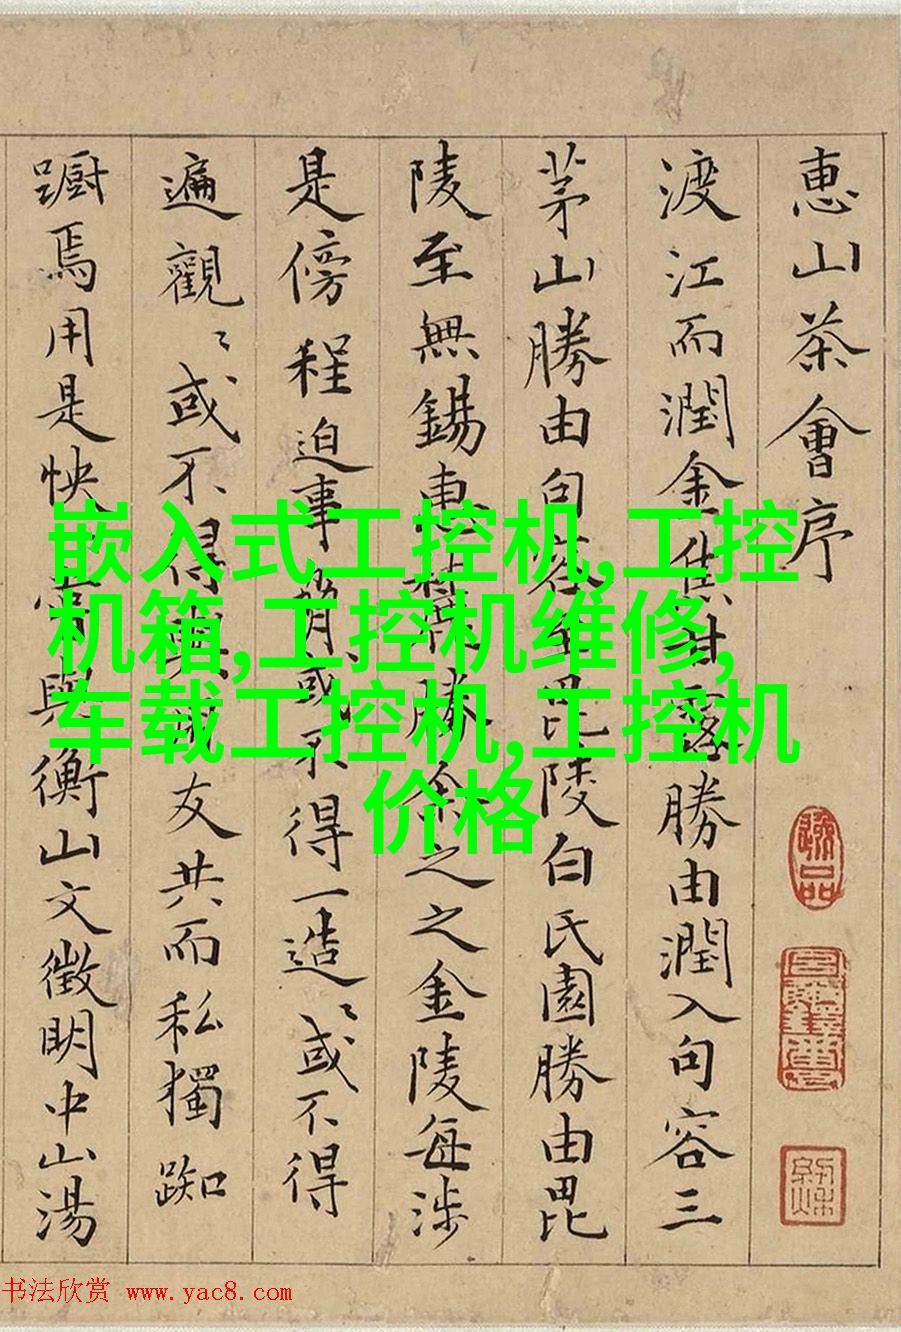 惠山茶會序
渡江而潤金焦甘露勝由潤入句容三
茅山勝由句容至毘陵白氏園勝由毘
陵至無錫惠勝余之之金陵每涉
是傍程迫事或不得一造〻或不得
遍觀〻或不得與友共而私獨踟
躕焉用是怏與衡山文徵明中山湯
嵌入式工控机,工控
机箱,工控机维修,
车载工控机,工控机
价格
书法欣赏 www.yac8.com